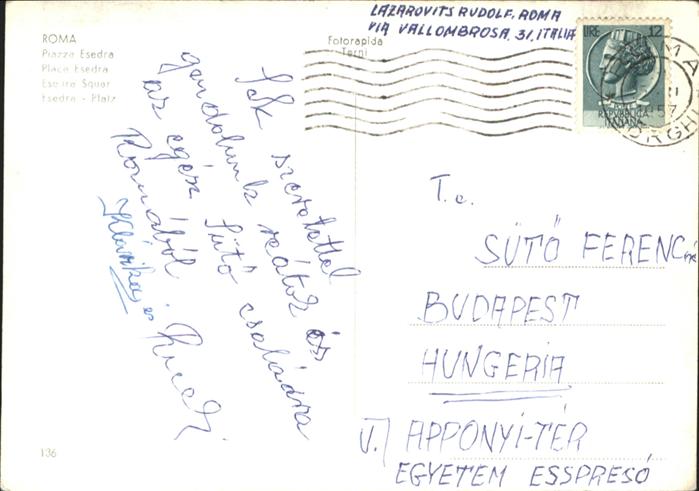 ROMA
Piazza Esedra
Place Esedra
Esedra Squar
Esedra - Platz
Fotorapida
Terni
LAZAROVITS RUDOLF, ROMA
VIA VALLOMBROSA, 31, ITALIA
LIRE 12
REPVBBLICA
ITALIANA
1957
Sok szeretettel
gondolunk reátok és
az egész Sütő családra
Romából.
Klárika és Rudi
T. c.
SÜTŐ FERENCné
BUDAPEST
HUNGERIA
V. APPONYI-TÉR
EGYETEM ESSPRESÓ
136